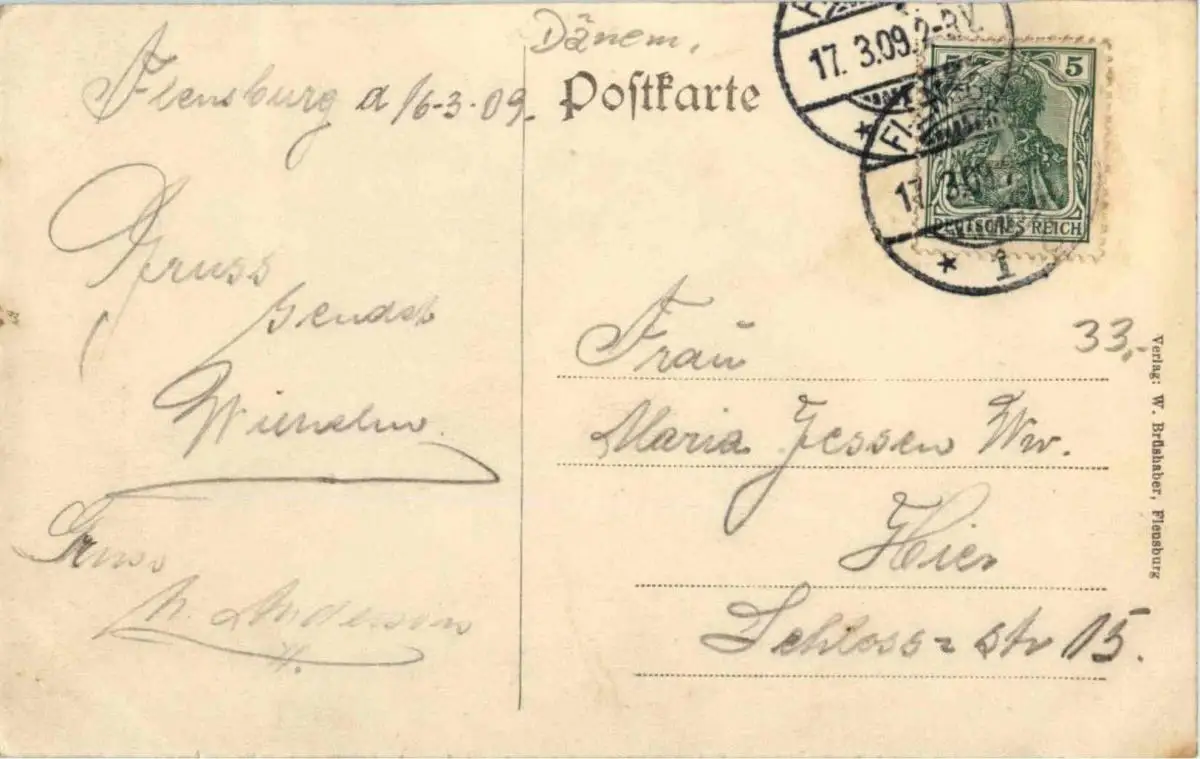 Dänem.
Postkarte
Flensburg d 16-3-09.
Gruss
sendet
Wilhelm.
Gruss
Frau
Maria Jessen Ww.
Hier
Schloss=str 15.
33,-
17. 3.09. 2-
17. 3.09.
* 1
5 5
DEUTSCHES REICH
Verlag: W. Brüshaber, Flensburg